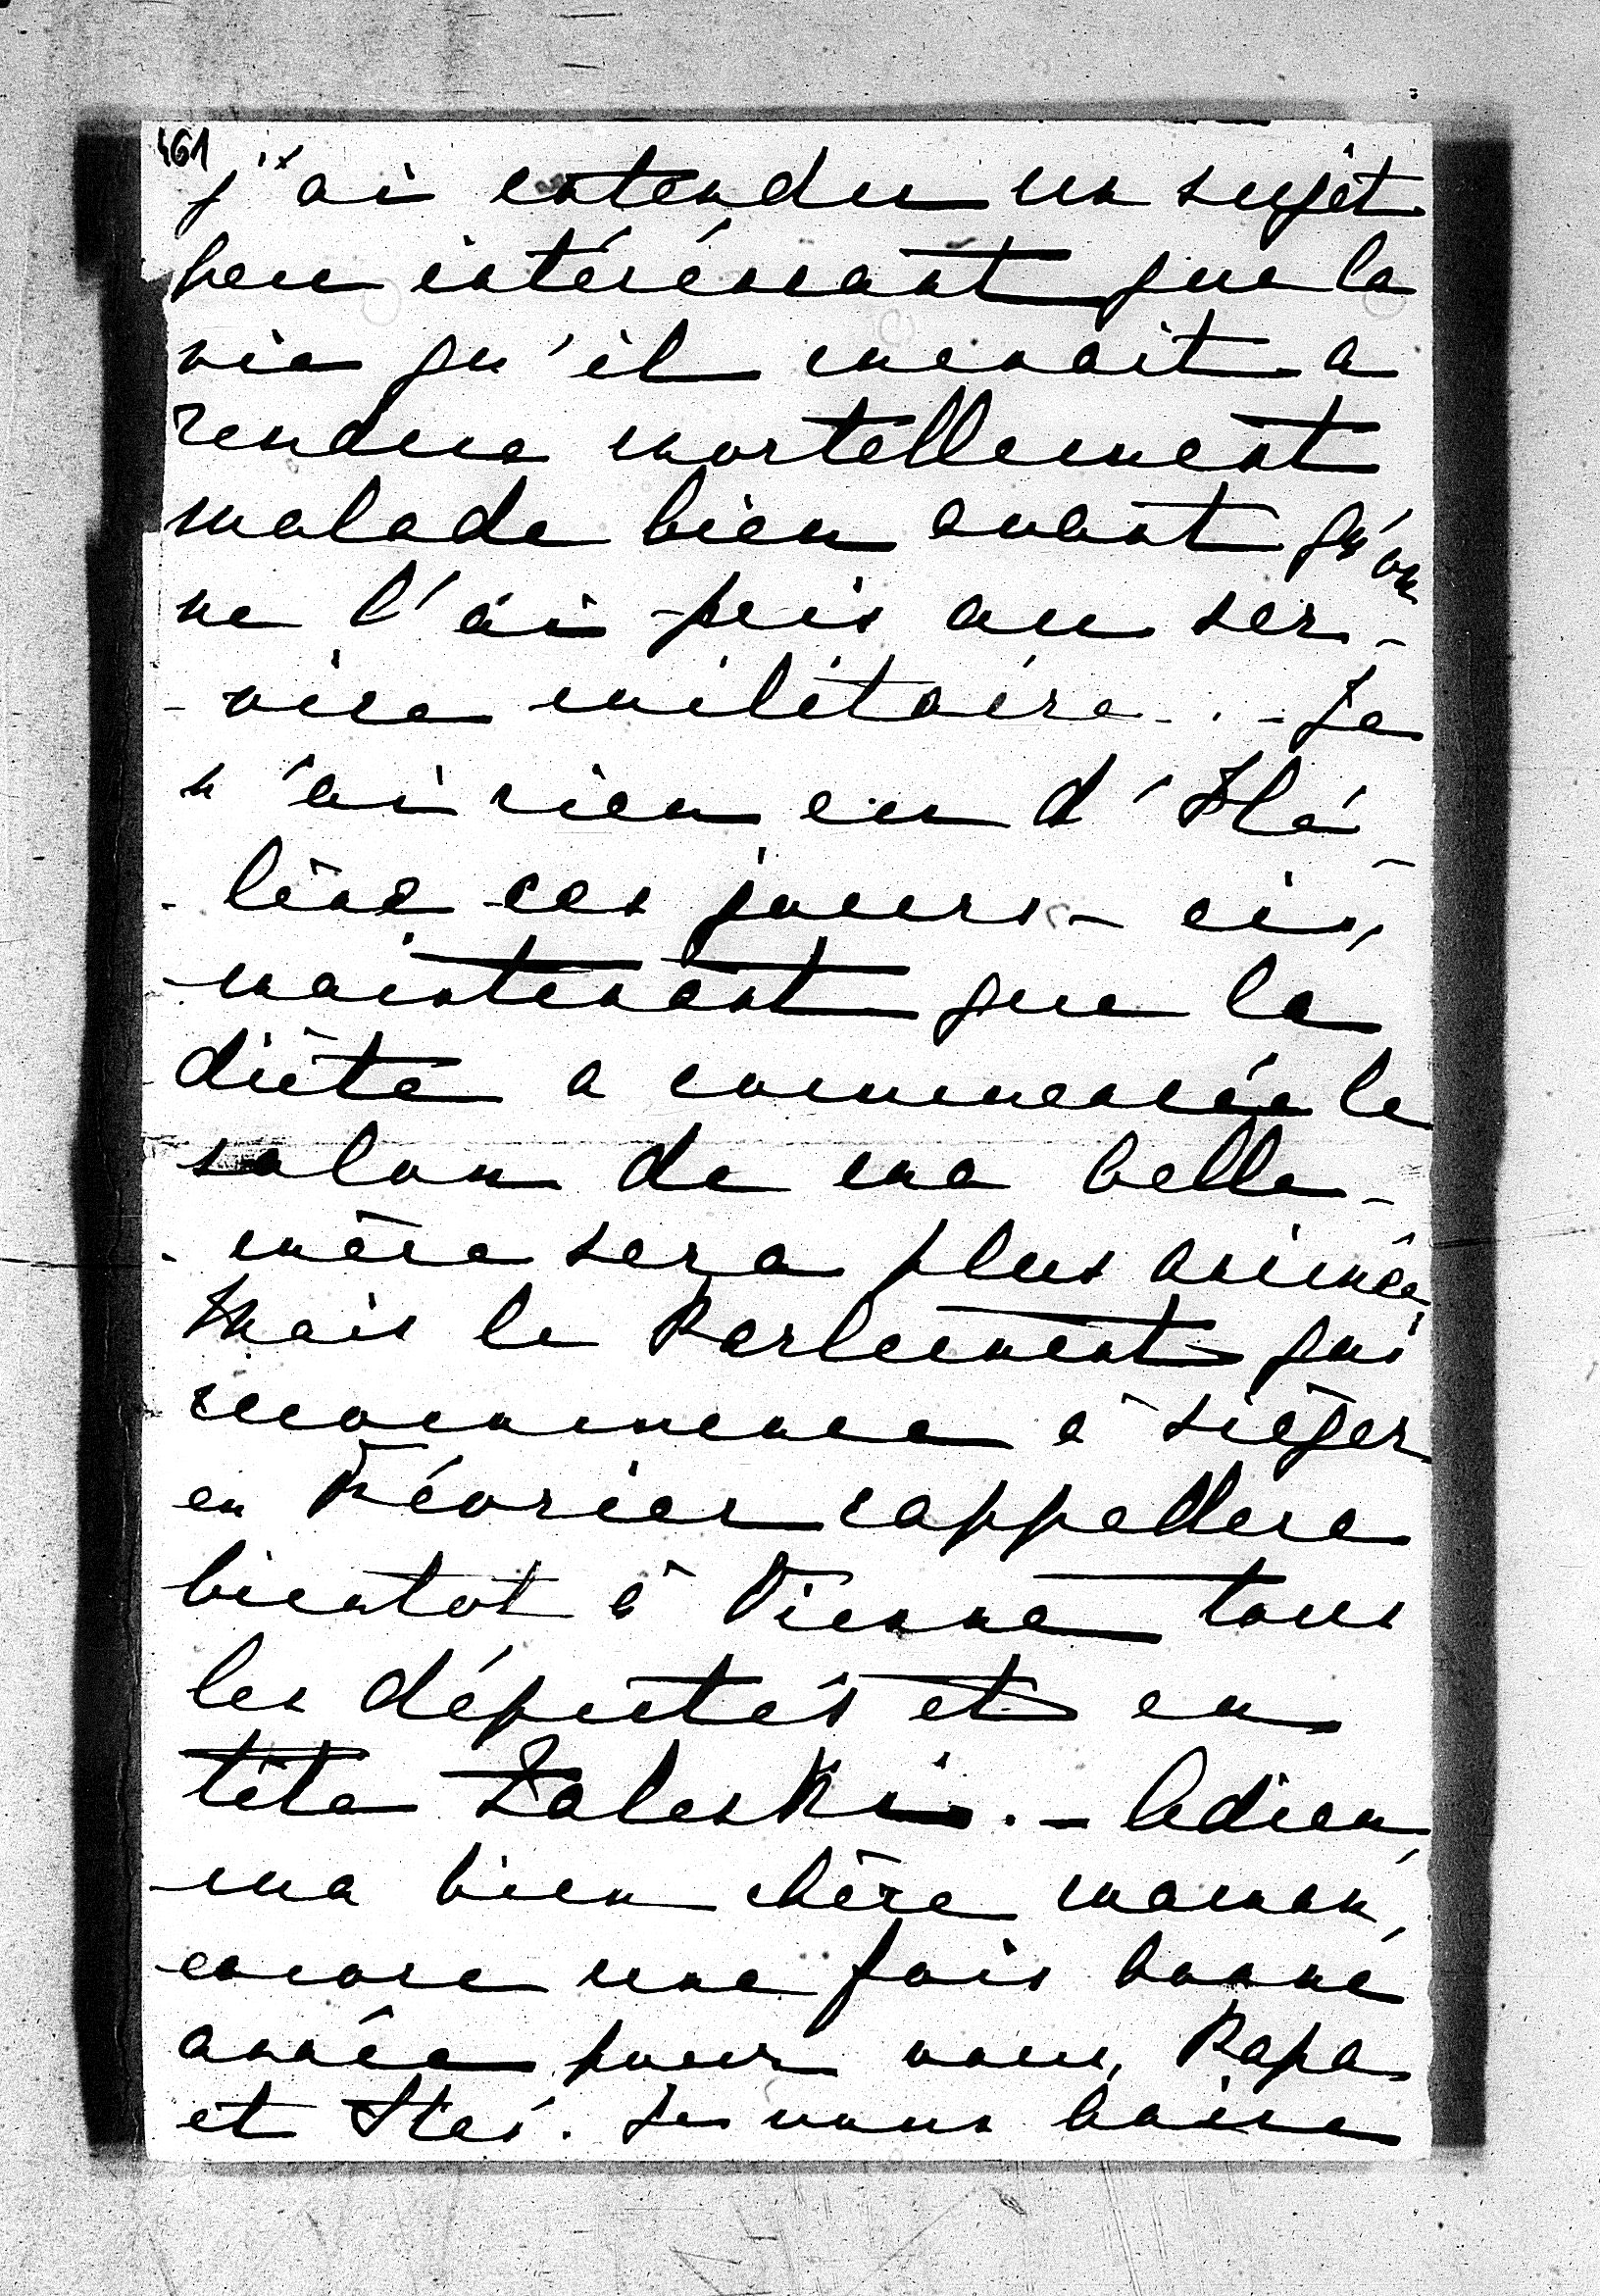 461
j'ai entendu un sujet
peu intéréssant que la
vie qu'il menait a
rendue mortellement
malade bien avant qu'on
ne l'ai pris au ser-
-vice militaire. - Je
n'ai rien eu d'Hé-
-lène ces jours-ci,
maintenant que la
diète a commencée le
salon de ma belle-
-mère sera plus animée,
Mais le Parlement qui
recommence à sièger
en Février rappellera
bientot à Vienne tous
les députés et en
tête Zaleski. - Adieu,
ma bien chère maman,
encore une fois bonne
année pour vous, Papa
et Staś. Je vous baise